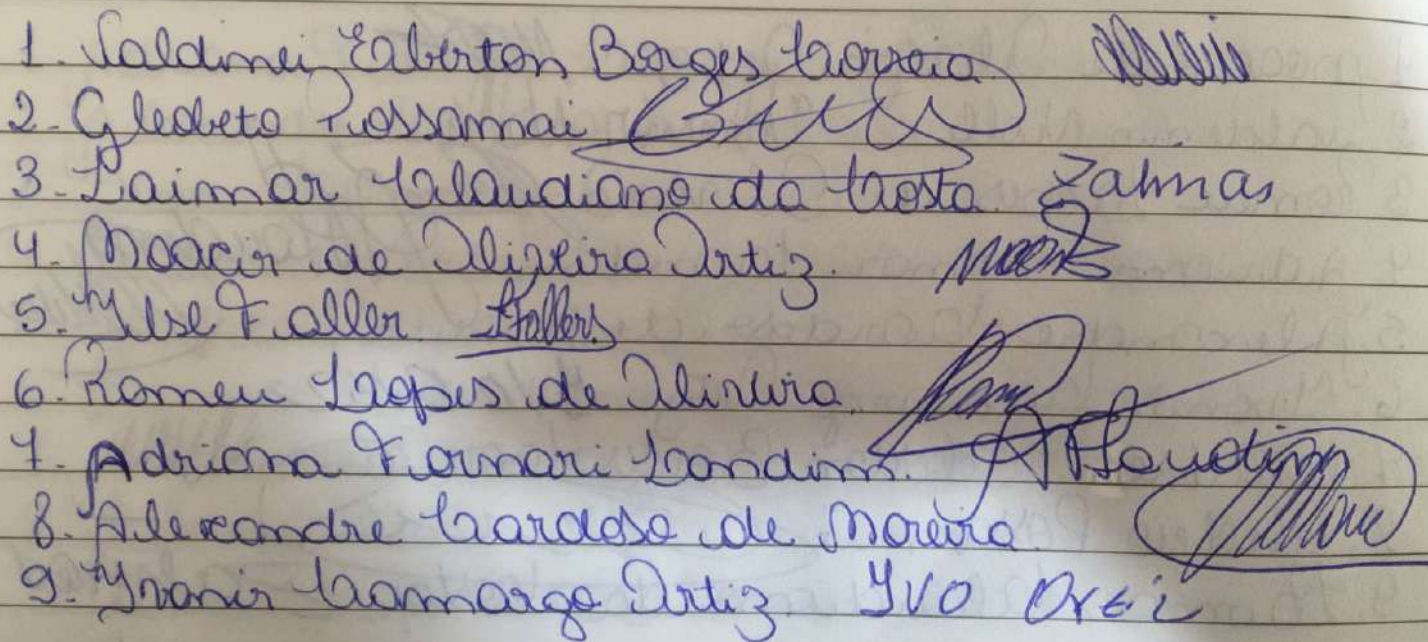 1. Valdinei Elberton Borges Correia
2. Gleobeto Possamai
3. Laimar Claudiano da Costa Zalmas
4. Moacir de Oliveira Ortiz.
5. Ilse Faller Ifallers
6. Romeu Lopes de Oliveira
7. Adriana Fornari Landim.
8. Alexandre Cardoso de Moreira
9. Ivanir Camargo Ortiz IVO Orti